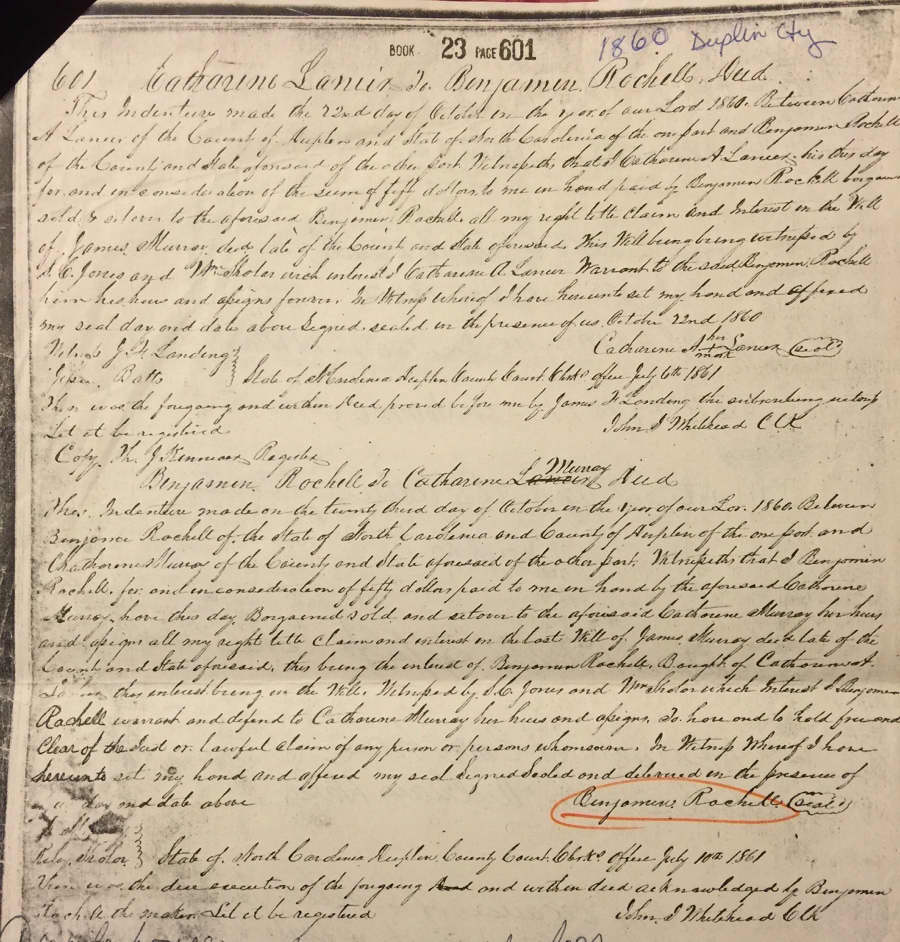 BOOK 23 PAGE 601 1860 Duplin Cty
601 Catharine Lanier To Benjamin Rochell Deed
This Indenture made the 22nd day of October in the year of our Lord 1860. Between Catharine
A Lanier of the County of Duplin and State of North Carolina of the one part and Benjamin Rochell
of the County and State aforesaid of the other part. Witnesseth that I Catharine A Lanier this day
for and in consideration of the sum of fifty dollars to me in hand paid by Benjamin Rochell
sold & to the aforesaid Benjamin Rochell all my right title claim and Interest in the Will
of James Murray decd late of the County and State aforesaid. This Will being being witnessed by
S. C. Jones and Wm Sholar wich interest I Catharine A Lanier Warrant to the said Benjamin Rochell
him his heirs and assigns forever. In Witness whereof I have hereunto set my hand and affixed
my seal day and date above Signed sealed in the presence of us October 22nd 1860
Witness J. H. Landing Catharine A her Lanier (seal)
Batts mark
State of N Carolina Duplin County Court Clerks office July 6th 1861
Then was the foregoing and within Deed proved before me by James Landing the subscribing witness
Let it be registered John J Whitehead Clk
Copy Th. J. Register
Benjamin Rochell To Catharine Murray Deed
This Indenture made on the twenty third day of October in the year of our Lor. 1860. Between
Benjamin Rochell of the State of North Carolina and County of Duplin of the one part and
Chatharine Murray of the County and State aforesaid of the other part. Witnesseth that I Benjamin
Rochell for and in consideration of fifty dollars paid to me in hand by the aforesaid Catharine
Murray have this day Bargained sold and setover to the aforesaid Catharine Murray her heirs
and assigns all my right title Claim and interest in the last Will of James Murray decd late of the
County and State aforesaid. this being the interest of Benjamin Rochell Bought of Catharine A.
Lanier this interest being in the Will Witnessed by S. C. Jones and Wm Sholar which Interest I Benjamin
Rochell warrant and defend to Catharine Murray her heirs and assigns. To have and to hold free and
Clear of the Just or lawful claim of any person or persons whomsoever. In Witness Whereof I have
hereunto set my hand and affixed my seal Signed Sealed and delivered in the presence of
day and date above Benjamin Rochell (seal)
Sholar State of North Carolina Duplin County Court Clerks office July 10th 1861
Then was the due execution of the foregoing and within deed acknowledged by Benjamin
Rochell the maker. Let it be registered John J Whitehead Clk